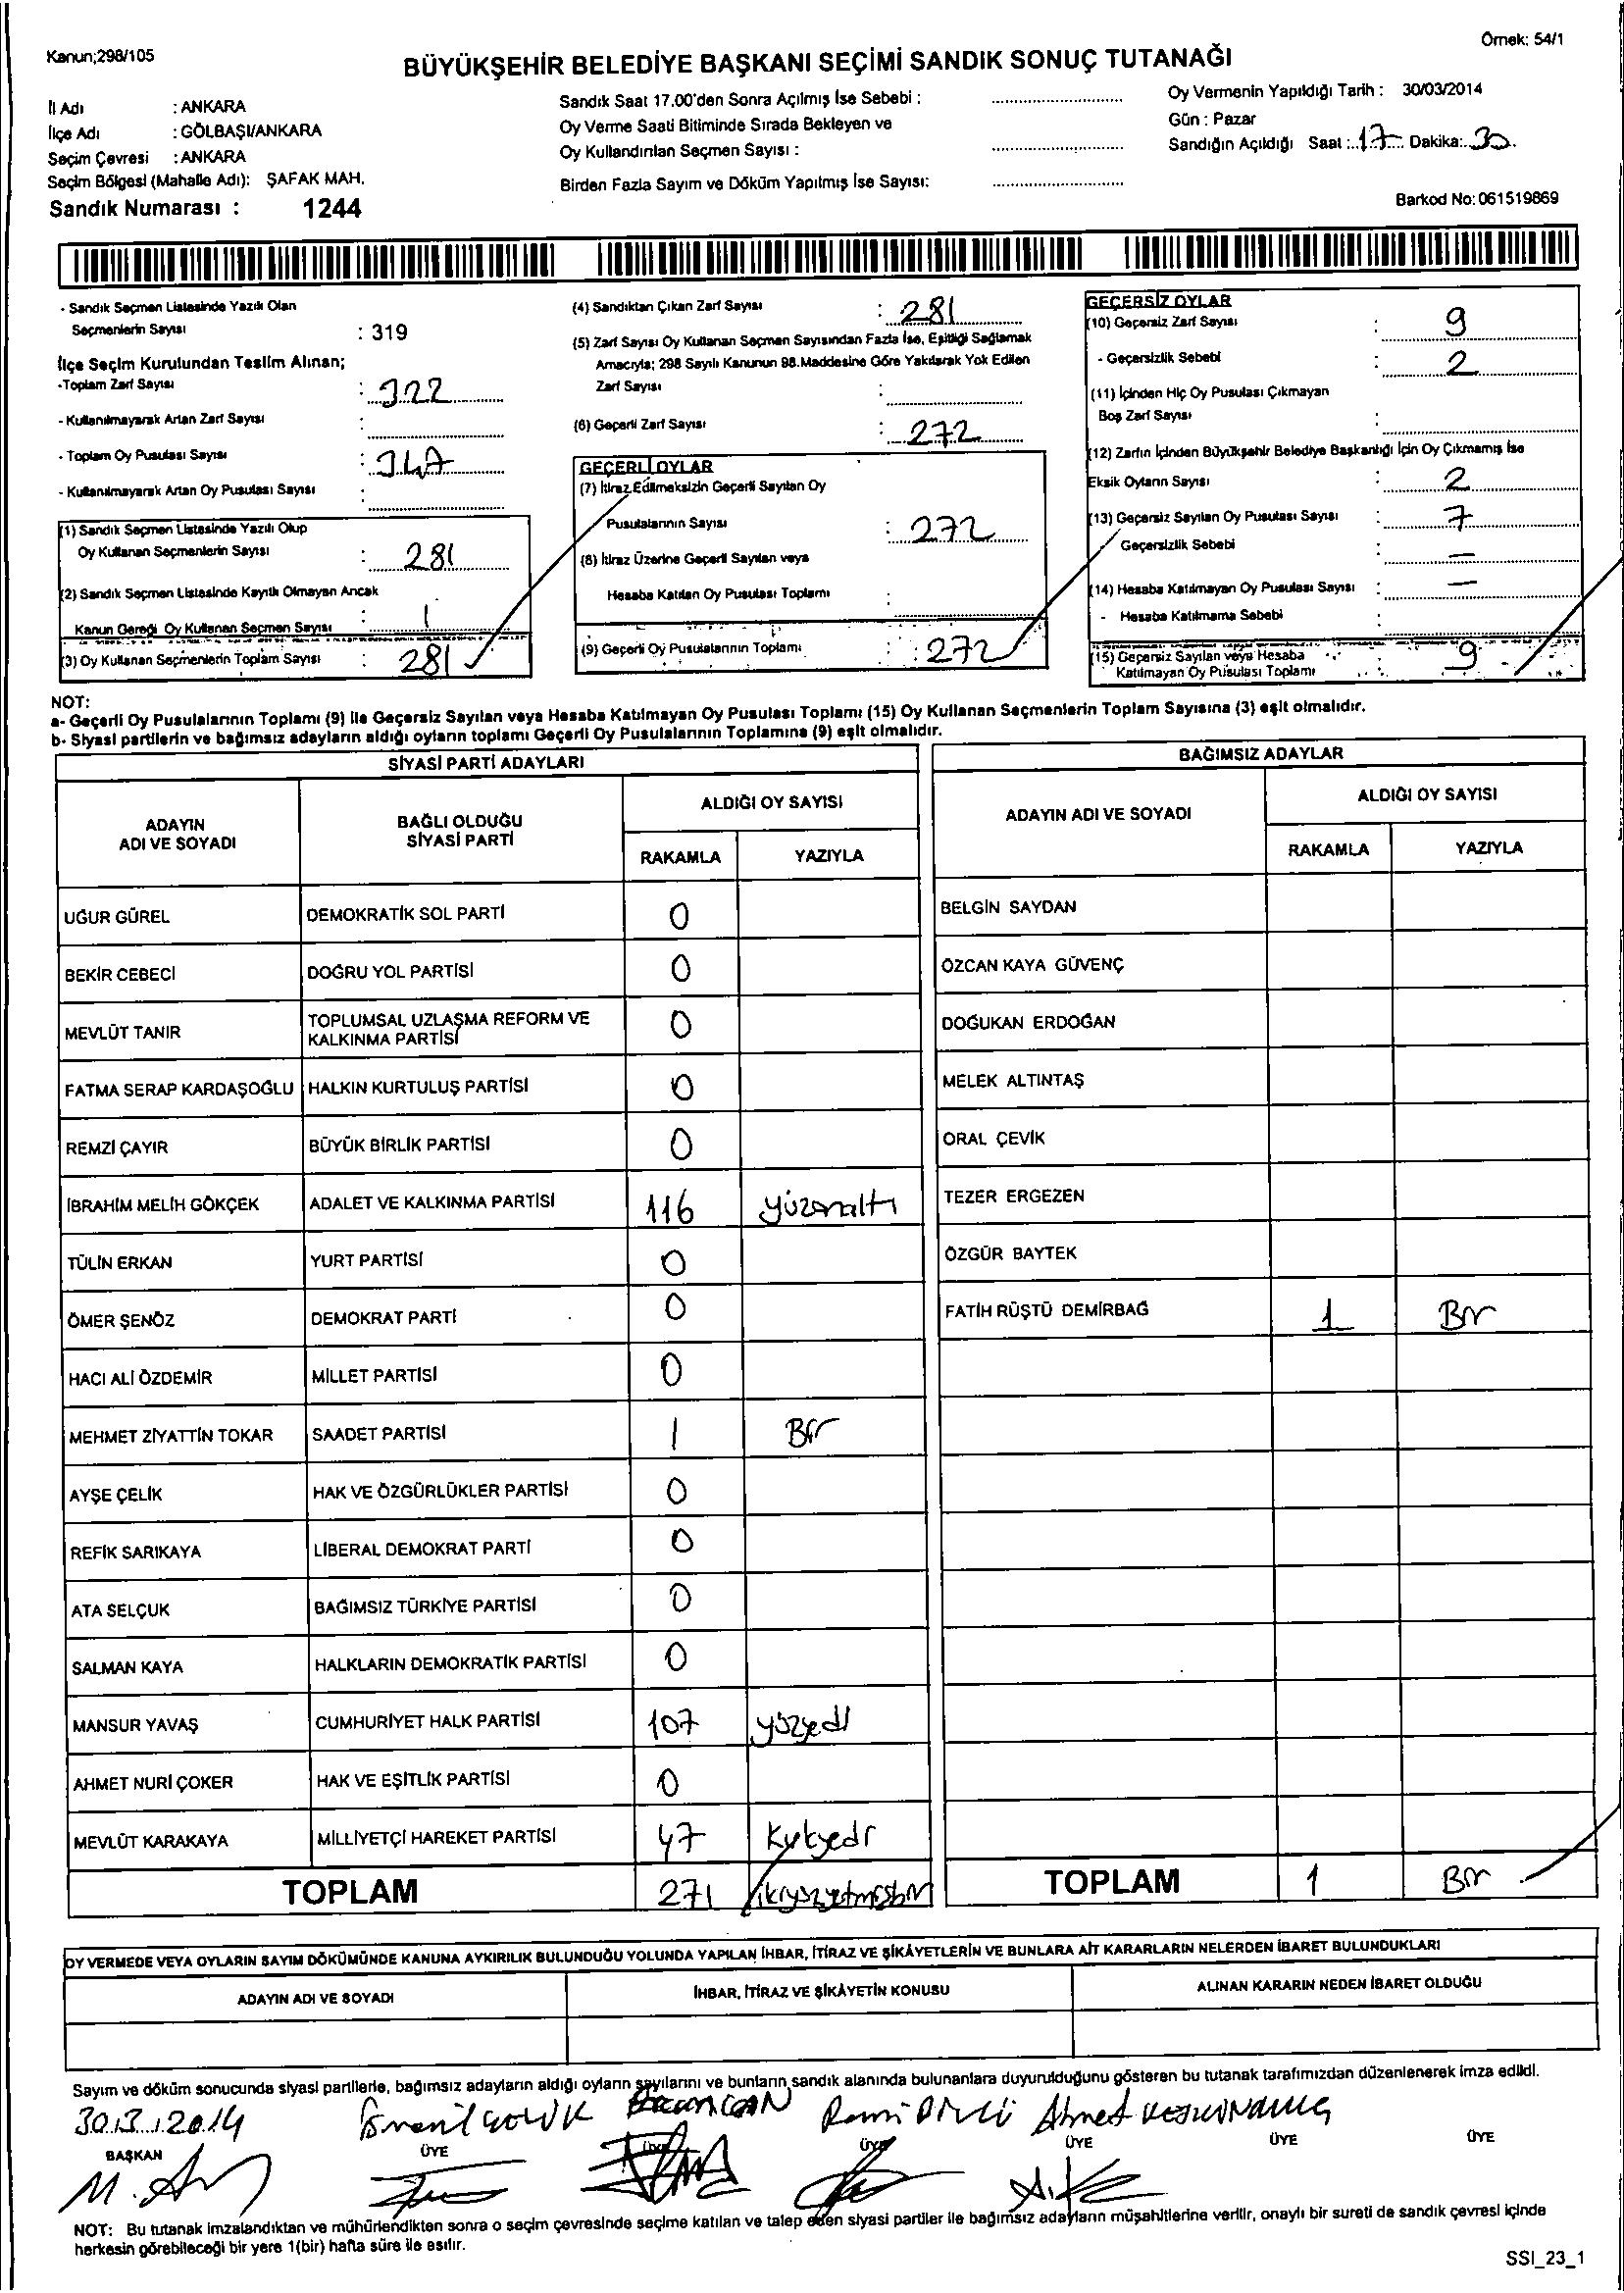 Kanun;298/105
Örnek: 54/1
BÜYÜKŞEHİR BELEDİYE BAŞKANI SEÇİMİ SANDIK SONUÇ TUTANAĞI
İl Adı : ANKARA
İlçe Adı : GÖLBAŞI/ANKARA
Seçim Çevresi : ANKARA
Seçim Bölgesi (Mahalle Adı): ŞAFAK MAH.
Sandık Numarası : 1244
Sandık Saat 17.00'den Sonra Açılmış İse Sebebi :
Oy Verme Saati Bitiminde Sırada Bekleyen ve
Oy Kullandırılan Seçmen Sayısı :
Birden Fazla Sayım ve Döküm Yapılmış İse Sayısı:
Oy Vermenin Yapıldığı Tarih : 30/03/2014
Gün : Pazar
Sandığın Açıldığı Saat : 17 Dakika: 30
Barkod No: 061519869
- Sandık Seçmen Listesinde Yazılı Olan
Seçmenlerin Sayısı : 319
İlçe Seçim Kurulundan Teslim Alınan;
-Toplam Zarf Sayısı : 322
- Kullanılmayarak Artan Zarf Sayısı :
- Toplam Oy Pusulası Sayısı :
- Kullanılmayarak Artan Oy Pusulası Sayısı :
(1) Sandık Seçmen Listesinde Yazılı Olup
Oy Kullanan Seçmenlerin Sayısı : 281
(2) Sandık Seçmen Listesinde Kayıtlı Olmayan Ancak
Kanun Gereği Oy Kullanan Seçmen Sayısı : 1
(3) Oy Kullanan Seçmenlerin Toplam Sayısı : 281
(4) Sandıktan Çıkan Zarf Sayısı : 281
(5) Zarf Sayısı Oy Kullanan Seçmen Sayısından Fazla İse, Eşitliği Sağlamak
Amacıyla; 298 Sayılı Kanunun 98.Maddesine Göre Yakılarak Yok Edilen
Zarf Sayısı :
(6) Geçerli Zarf Sayısı : 272
GEÇERLİ OYLAR
(7) İtiraz Edilmeksizin Geçerli Sayılan Oy
Pusulalarının Sayısı : 272
(8) İtiraz Üzerine Geçerli Sayılan veya
Hesaba Katılan Oy Pusulası Toplamı :
(9) Geçerli Oy Pusulalarının Toplamı : 272
GEÇERSİZ OYLAR
(10) Geçersiz Zarf Sayısı : 9
- Geçersizlik Sebebi : 2
(11) İçinden Hiç Oy Pusulası Çıkmayan
Boş Zarf Sayısı :
(12) Zarfın İçinden Büyükşehir Belediye Başkanlığı İçin Oy Çıkmamış İse
Eksik Oyların Sayısı : 2
(13) Geçersiz Sayılan Oy Pusulası Sayısı : 7
Geçersizlik Sebebi : —
(14) Hesaba Katılmayan Oy Pusulası Sayısı : —
- Hesaba Katılmama Sebebi :
(15) Geçersiz Sayılan veya Hesaba
Katılmayan Oy Pusulası Toplamı : 9
NOT:
a- Geçerli Oy Pusulalarının Toplamı (9) ile Geçersiz Sayılan veya Hesaba Katılmayan Oy Pusulası Toplamı (15) Oy Kullanan Seçmenlerin Toplam Sayısına (3) eşit olmalıdır.
b- Siyasi partilerin ve bağımsız adayların aldığı oyların toplamı Geçerli Oy Pusulalarının Toplamına (9) eşit olmalıdır.
SİYASİ PARTİ ADAYLARI
ADAYIN ADI VE SOYADI
BAĞLI OLDUĞU SİYASİ PARTİ
ALDIĞI OY SAYISI
RAKAMLA YAZIYLA
UĞUR GÜREL DEMOKRATİK SOL PARTİ 0
BEKİR CEBECİ DOĞRU YOL PARTİSİ 0
MEVLÜT TANIR TOPLUMSAL UZLAŞMA REFORM VE KALKINMA PARTİSİ 0
FATMA SERAP KARDAŞOĞLU HALKIN KURTULUŞ PARTİSİ 0
REMZİ ÇAYIR BÜYÜK BİRLİK PARTİSİ 0
İBRAHİM MELİH GÖKÇEK ADALET VE KALKINMA PARTİSİ 116 yüzonaltı
TÜLİN ERKAN YURT PARTİSİ 0
ÖMER ŞENÖZ DEMOKRAT PARTİ 0
HACI ALİ ÖZDEMİR MİLLET PARTİSİ 0
MEHMET ZİYATTİN TOKAR SAADET PARTİSİ 1 Bir
AYŞE ÇELİK HAK VE ÖZGÜRLÜKLER PARTİSİ 0
REFİK SARIKAYA LİBERAL DEMOKRAT PARTİ 0
ATA SELÇUK BAĞIMSIZ TÜRKİYE PARTİSİ 0
SALMAN KAYA HALKLARIN DEMOKRATİK PARTİSİ 0
MANSUR YAVAŞ CUMHURİYET HALK PARTİSİ 107 yüzyedi
AHMET NURİ ÇOKER HAK VE EŞİTLİK PARTİSİ 0
MEVLÜT KARAKAYA MİLLİYETÇİ HAREKET PARTİSİ 47 Kırkyedi
TOPLAM 271 ikiyüzyetmişbir
BAĞIMSIZ ADAYLAR
ADAYIN ADI VE SOYADI
ALDIĞI OY SAYISI
RAKAMLA YAZIYLA
BELGİN SAYDAN
ÖZCAN KAYA GÜVENÇ
DOĞUKAN ERDOĞAN
MELEK ALTINTAŞ
ORAL ÇEVİK
TEZER ERGEZEN
ÖZGÜR BAYTEK
FATİH RÜŞTÜ DEMİRBAĞ 1 Bir
TOPLAM 1 Bir
OY VERMEDE VEYA OYLARIN SAYIM DÖKÜMÜNDE KANUNA AYKIRILIK BULUNDUĞU YOLUNDA YAPILAN İHBAR, İTİRAZ VE ŞİKÂYETLERİN VE BUNLARA AİT KARARLARIN NELERDEN İBARET BULUNDUKLARI
ADAYIN ADI VE SOYADI İHBAR, İTİRAZ VE ŞİKÂYETİN KONUSU ALINAN KARARIN NEDEN İBARET OLDUĞU
Sayım ve döküm sonucunda siyasi partilerle, bağımsız adayların aldığı oyların sayılarını ve bunların sandık alanında bulunanlara duyurulduğunu gösteren bu tutanak tarafımızdan düzenlenerek imza edildi.
30.3.2014
BAŞKAN ÜYE ÜYE ÜYE ÜYE ÜYE ÜYE
NOT: Bu tutanak imzalandıktan ve mühürlendikten sonra o seçim çevresinde seçime katılan ve talep eden siyasi partiler ile bağımsız adayların müşahitlerine verilir, onaylı bir sureti de sandık çevresi içinde
herkesin görebileceği bir yere 1(bir) hafta süre ile asılır.
SSI_23_1